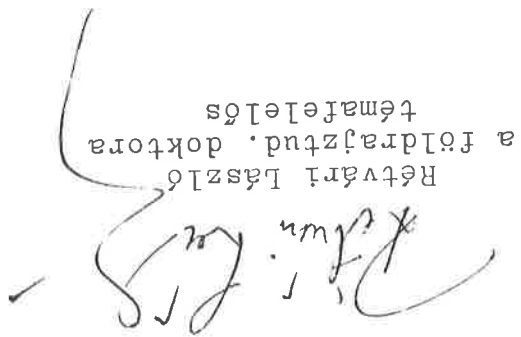 Rétvári László
a földrajztud. doktora
témafelelős